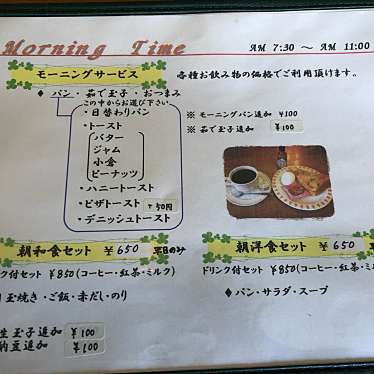 Morning Time
AM 7:30 ～ AM 11:00
モーニングサービス
各種お飲み物の価格でご利用頂けます。
◆ パン・茹で玉子・おつまみ
この中からお選び下さい
・日替わりパン
・トースト
バター
ジャム
小倉
ピーナッツ
・ハニートースト
・ピザトースト
・デニッシュトースト
※ モーニングパン追加 ¥100
※ 茹で玉子追加 ¥100
朝和食セット ¥650 平日のみ
ク付セット ¥850(コーヒー・紅茶・ミルク)
玉焼き・ご飯・赤だし・のり
生玉子追加 ¥100
納豆追加 ¥100
朝洋食セット ¥650
ドリンク付セット ¥850(コーヒー・紅茶・ミ
◆ パン・サラダ・スープ